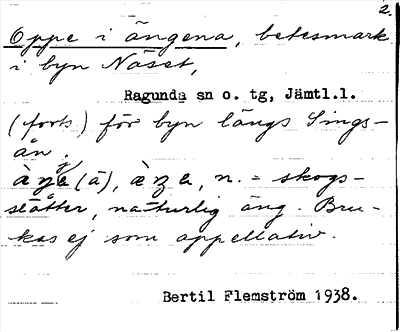 2.
Oppe i ängena, betesmark
i byn Näset,
Ragunda sn o. tg, Jämtl.l.
(forts) för byn längs Sings-
ån.
(ä), n. = skogs-
slåtter, naturlig äng. Bru-
kas ej som appellativ.
Bertil Flemström 1938.